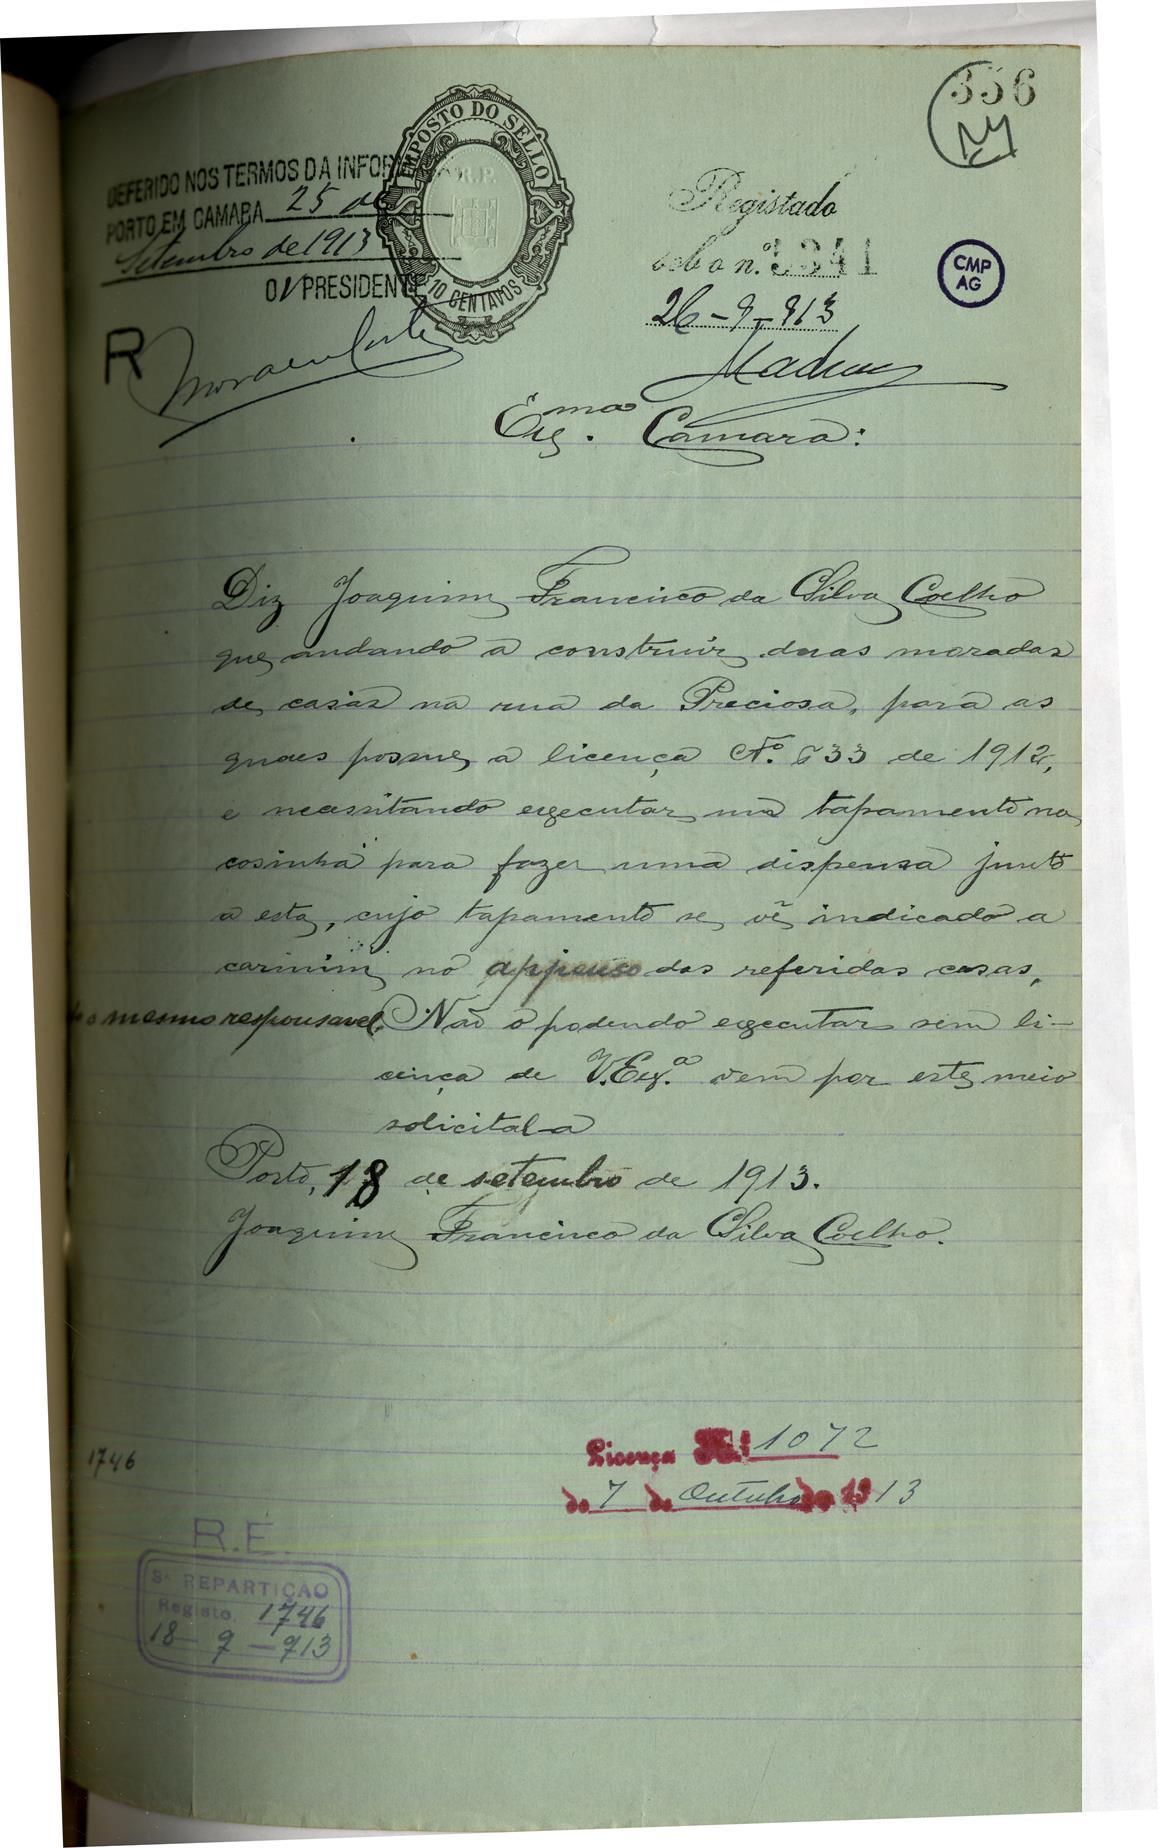 356
DEFERIDO NOS TERMOS DA INFOR
PORTO EM CAMARA 25 de
Setembro de 1913
O V PRESIDENTE
IMPOSTO DO SELLO
R.P.
10 CENTAVOS
Registado
sob o n.º 3341
26-9-913
CMP
AG
R
Exma. Camara:
Diz Joaquim Francisco da Silva Coelho
que andando a construir duas moradas
de casas na rua da Preciosa, para as
quaes possue a licença Nº. 633 de 1912,
e necessitando executar um tapamento na
cosinha para fazer uma dispensa junto
a esta, cujo tapamento se vê indicado a
carmim no appenso das referidas casas,
o mesmo responsavel. Não o podendo executar sem li-
cença de V. Exª. vem por este meio
solicital-a
Porto, 18 de setembro de 1913.
Joaquim Francisco da Silva Coelho.
Licença N.º 1072
de 7 de Outubro de 1913
1746
R.E.
3ª REPARTIÇÃO
Registo. 1746
18-9-913